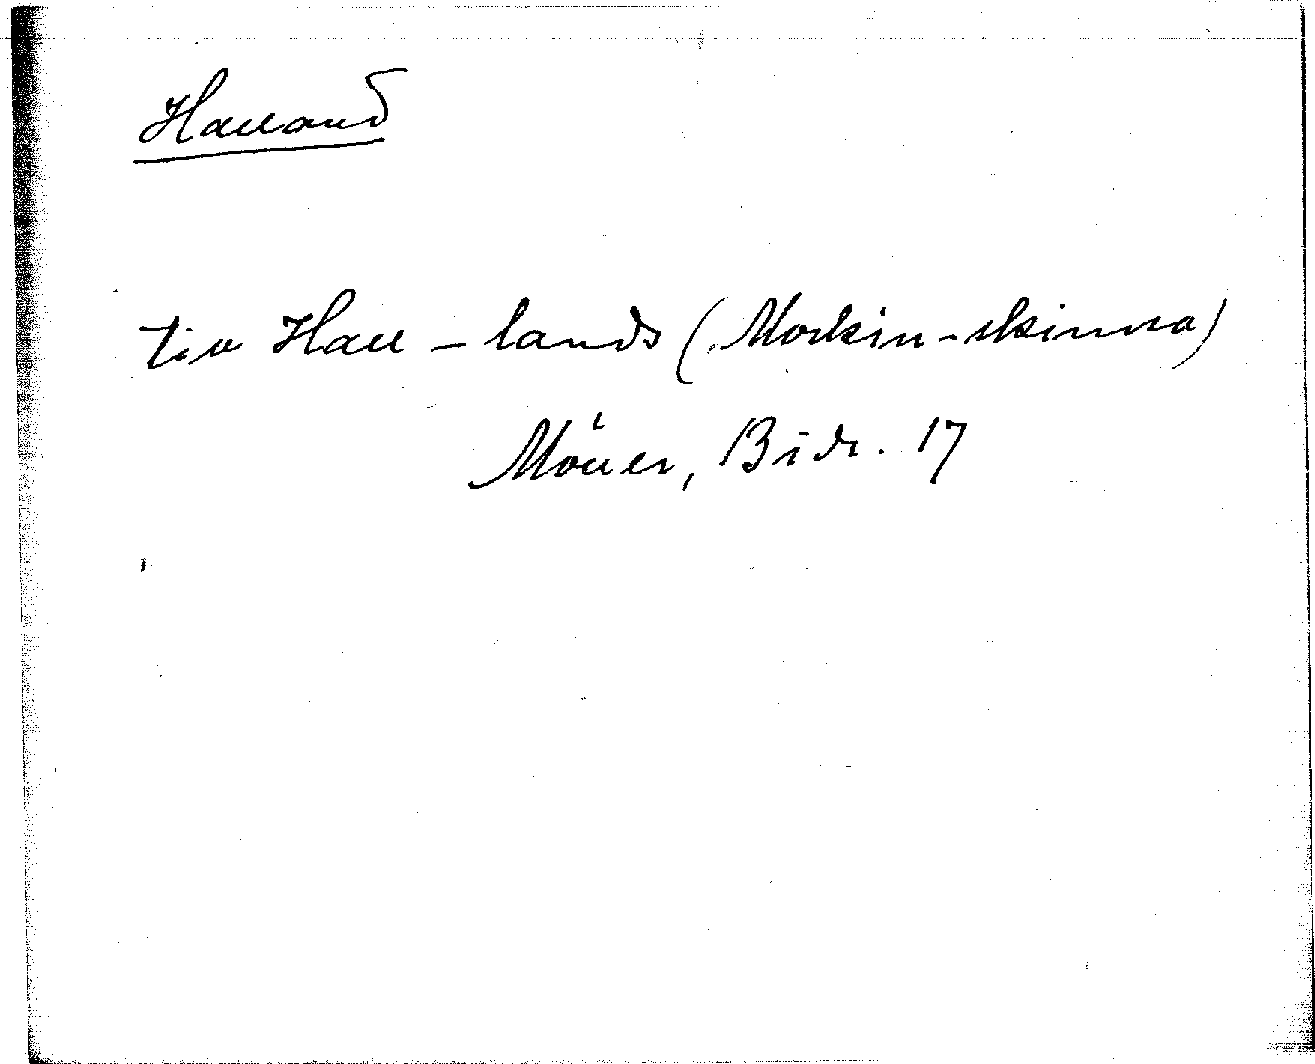 Halland
til Hall-lands (Morkin-skinna)
Möller, Bidr. 17